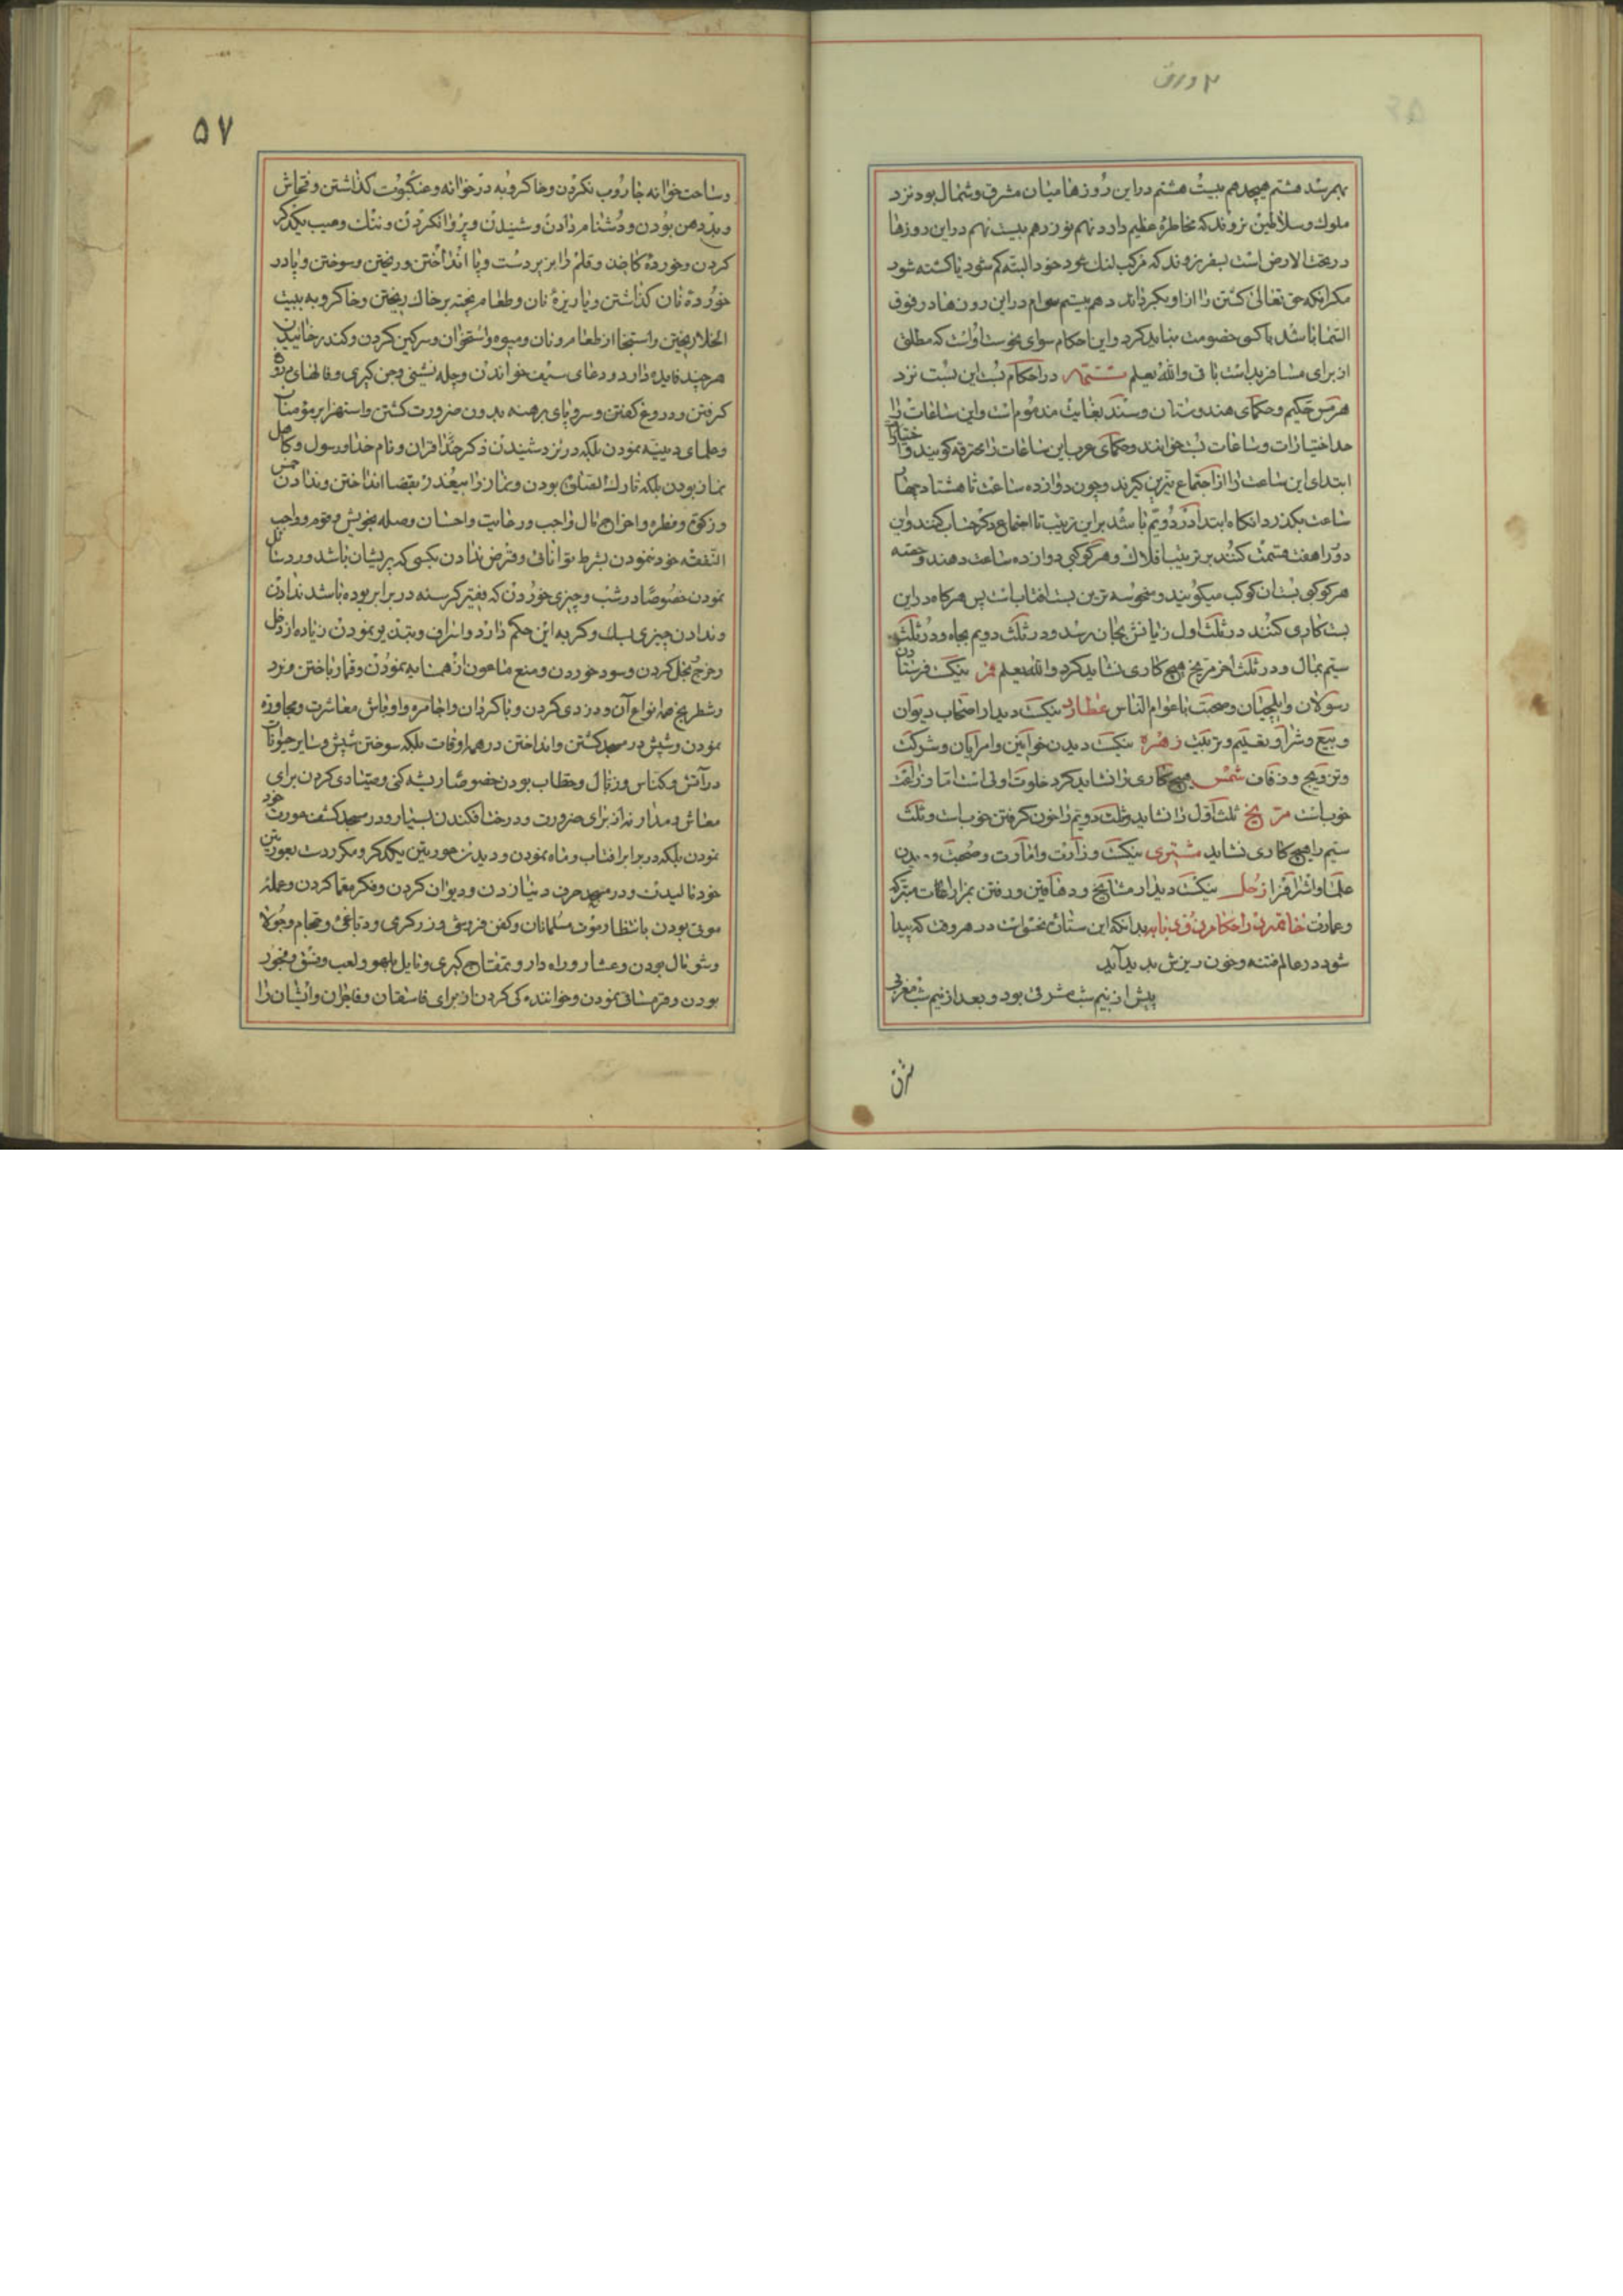 ۲ ورق
بهمرسد هشتم هیجدهم بیست هشتم دراین روزها میان مشرق و شمال بود نزد
ملوک و سلاطین نروند که مخاطرهٔ عظیم دارد نهم نوزدهم بیست نهم دراین روزها
در تحت الارض است بسفر نروند که مرکب لنک شود خود البته کم شود یا کشته شود
مکرانکه حق تعالی کشتن را ازاو بکرداند دهم بیستم سیوام دراین روزها در فوق
السما باشد با کسی خصومت نباید کرد و این احکام سوای نحوست اوّلست که مطلق
از برای مسافر بد است باقی والله یعلم تتمه در احکام بست این بست نزد
هرمس حکیم و حکمای هندوستان و سند بغایت مذموم است و این ساعات را
حد اختیارات و ساعات بست خوانند و حکمای عرب این ساعات را محترقه کویند و اختیار
ابتدای این ساعت را از اجتماع نیّرین کیرند و چون دوازده ساعت تا هشتاد چهار
ساعت بکذرد انکاه ابتدا از دویّم باشد براین ترتیب تا اجتماع دکر حساب کنند و این
دور را هفت قسمت کنند بر ترتیب افلاک و هر کوکبی دوازده ساعت دهند و حصه
هر کوکبی بستان کوکب میکویند و منحوسه ترین بست افتابست پس هرکاه در این
بست کاری کنند در ثلث اول زیانش بجان رسد و در ثلث دویم بجاه و در ثلث
سیّم بمال و در ثلث اخر مریخ هیچ کاری نشاید کرد والله یعلم قمر نیکست فرستادن
رسولان و ایلچیان و صحبت با عوام الناس عطارد نیکست دیدار اصحاب دیوان
و بیع و شرا و تعلیم و ترتیب زهره نیکست دیدن خواتین و امرایان و شرکت
و تزویج و زفاف شمس هیچ کاری را نشاید کرد خلوت اولی است امّا و زراعت
خوبست مریخ ثلث اوّل را نشاید و ثلث دویّم را خون کرفتن خوبست و ثلث
سیّم را هیچ کاری نشاید مشتری نیکست وزارت و امارت و صحبت و دیدن
علما و اشراف را زحل نیکست دیدار مشایخ و دهاقین و رفتن بمزارعات متبرکه
و عمارت خاتمه در احکام بدانکه این ستاره نحس است در هر وقت که پیدا
شود در عالم فتنه و خون ریزش بدید آید
پیش از نیم شب مشرقی بود و بعد از نیم شب مغربی
۵۷
و ساحت خوانه جاروب نکردن و خاکروبه در خوانه و عنکبوت کذاشتن و فحّاش
و بد دهن بودن و دشنام دادن و شنیدن و پروا نکردن و ننک و عیب یکدکر
کردن و خوردهٔ کاغذ و قلم را بزیر دست و پا انداختن و ریختن و سوختن و پا در
خوردهٔ نان کذاشتن و یا ریزهٔ نان و طعام پخته بر خاک ریختن و خاکروبه به بیت
الخلا ریختن و استنجا از طعام و نان و میوه و استخوان و سرکین کردن و کندر خائیدن
هر چند فایده دارد و دعای سیف خواندن و چله نشینی و جن کیری و فالهای
کرفتن و دروغ کفتن و سر و پای برهنه بدون ضرورت کشتن و استهزا بر مؤمنان
و علمای دینیّه نمودن بلکه در نزد شنیدن ذکر خدا قران و نام خدا و رسول و کاهل
نماز بودن بلکه تارک الصلوة بودن و نماز را بیعذر بقضا انداختن و ندادن خمس
و زکوة و فطره و اخراج مال واجب و رعایت و احسان و صله بخویش و قوم و واجب
النفقه خود ننمودن بشرط توانائی و قرض ندادن بکسی که پریشان باشد و رد سائل
نمودن خصوصا در شب و چیزی خوردن که فقیر کرسنه در برابر بوده باشد ندادن
و ندادن چیزی بسک و کربه این حکم دارد و اسراف و تبذیر نمودن زیاده از دخل
و خرج بخل کردن و سود خوردن و منع ماعون از همسایه نمودن و قمار باختن و نرد
و شطرنج همه انواع آن و دزدی کردن و با کردان و اجامره و اوباش معاشرت و مجاوره
نمودن و شپش در مسجد کشتن و انداختن در همه اوقات بلکه سوختن شپش و سایر حیوانات
در آتش و کناس و زبال و حطاب بودن خصوصا ریشه کنی و صیّادی کردن برای
معاش و مدار نه از برای ضرورت و درخت افکندن بسیار و در مسجد کشف عورت خود
نمودن بلکه در برابر افتاب و ماه نمودن و دیدن عورتین یکدکر و مکرر دست بعورتین
خود مالیدن و در مسجد حرف دنیا زدن و دیوان کردن و فکر معما کردن و عمله
موتی بودن بانتظار موت مسلمانان و کفن فروشی و زرکری و دباغی و حجام و جولا
و شومال بودن و عشار و راه دار و تمغاج کیری و مایل بلهو و لعب و فسق و فجور
بودن و قرمساقی نمودن و خواننده کی کردن از برای فاسقان و فاجران و ایشان را